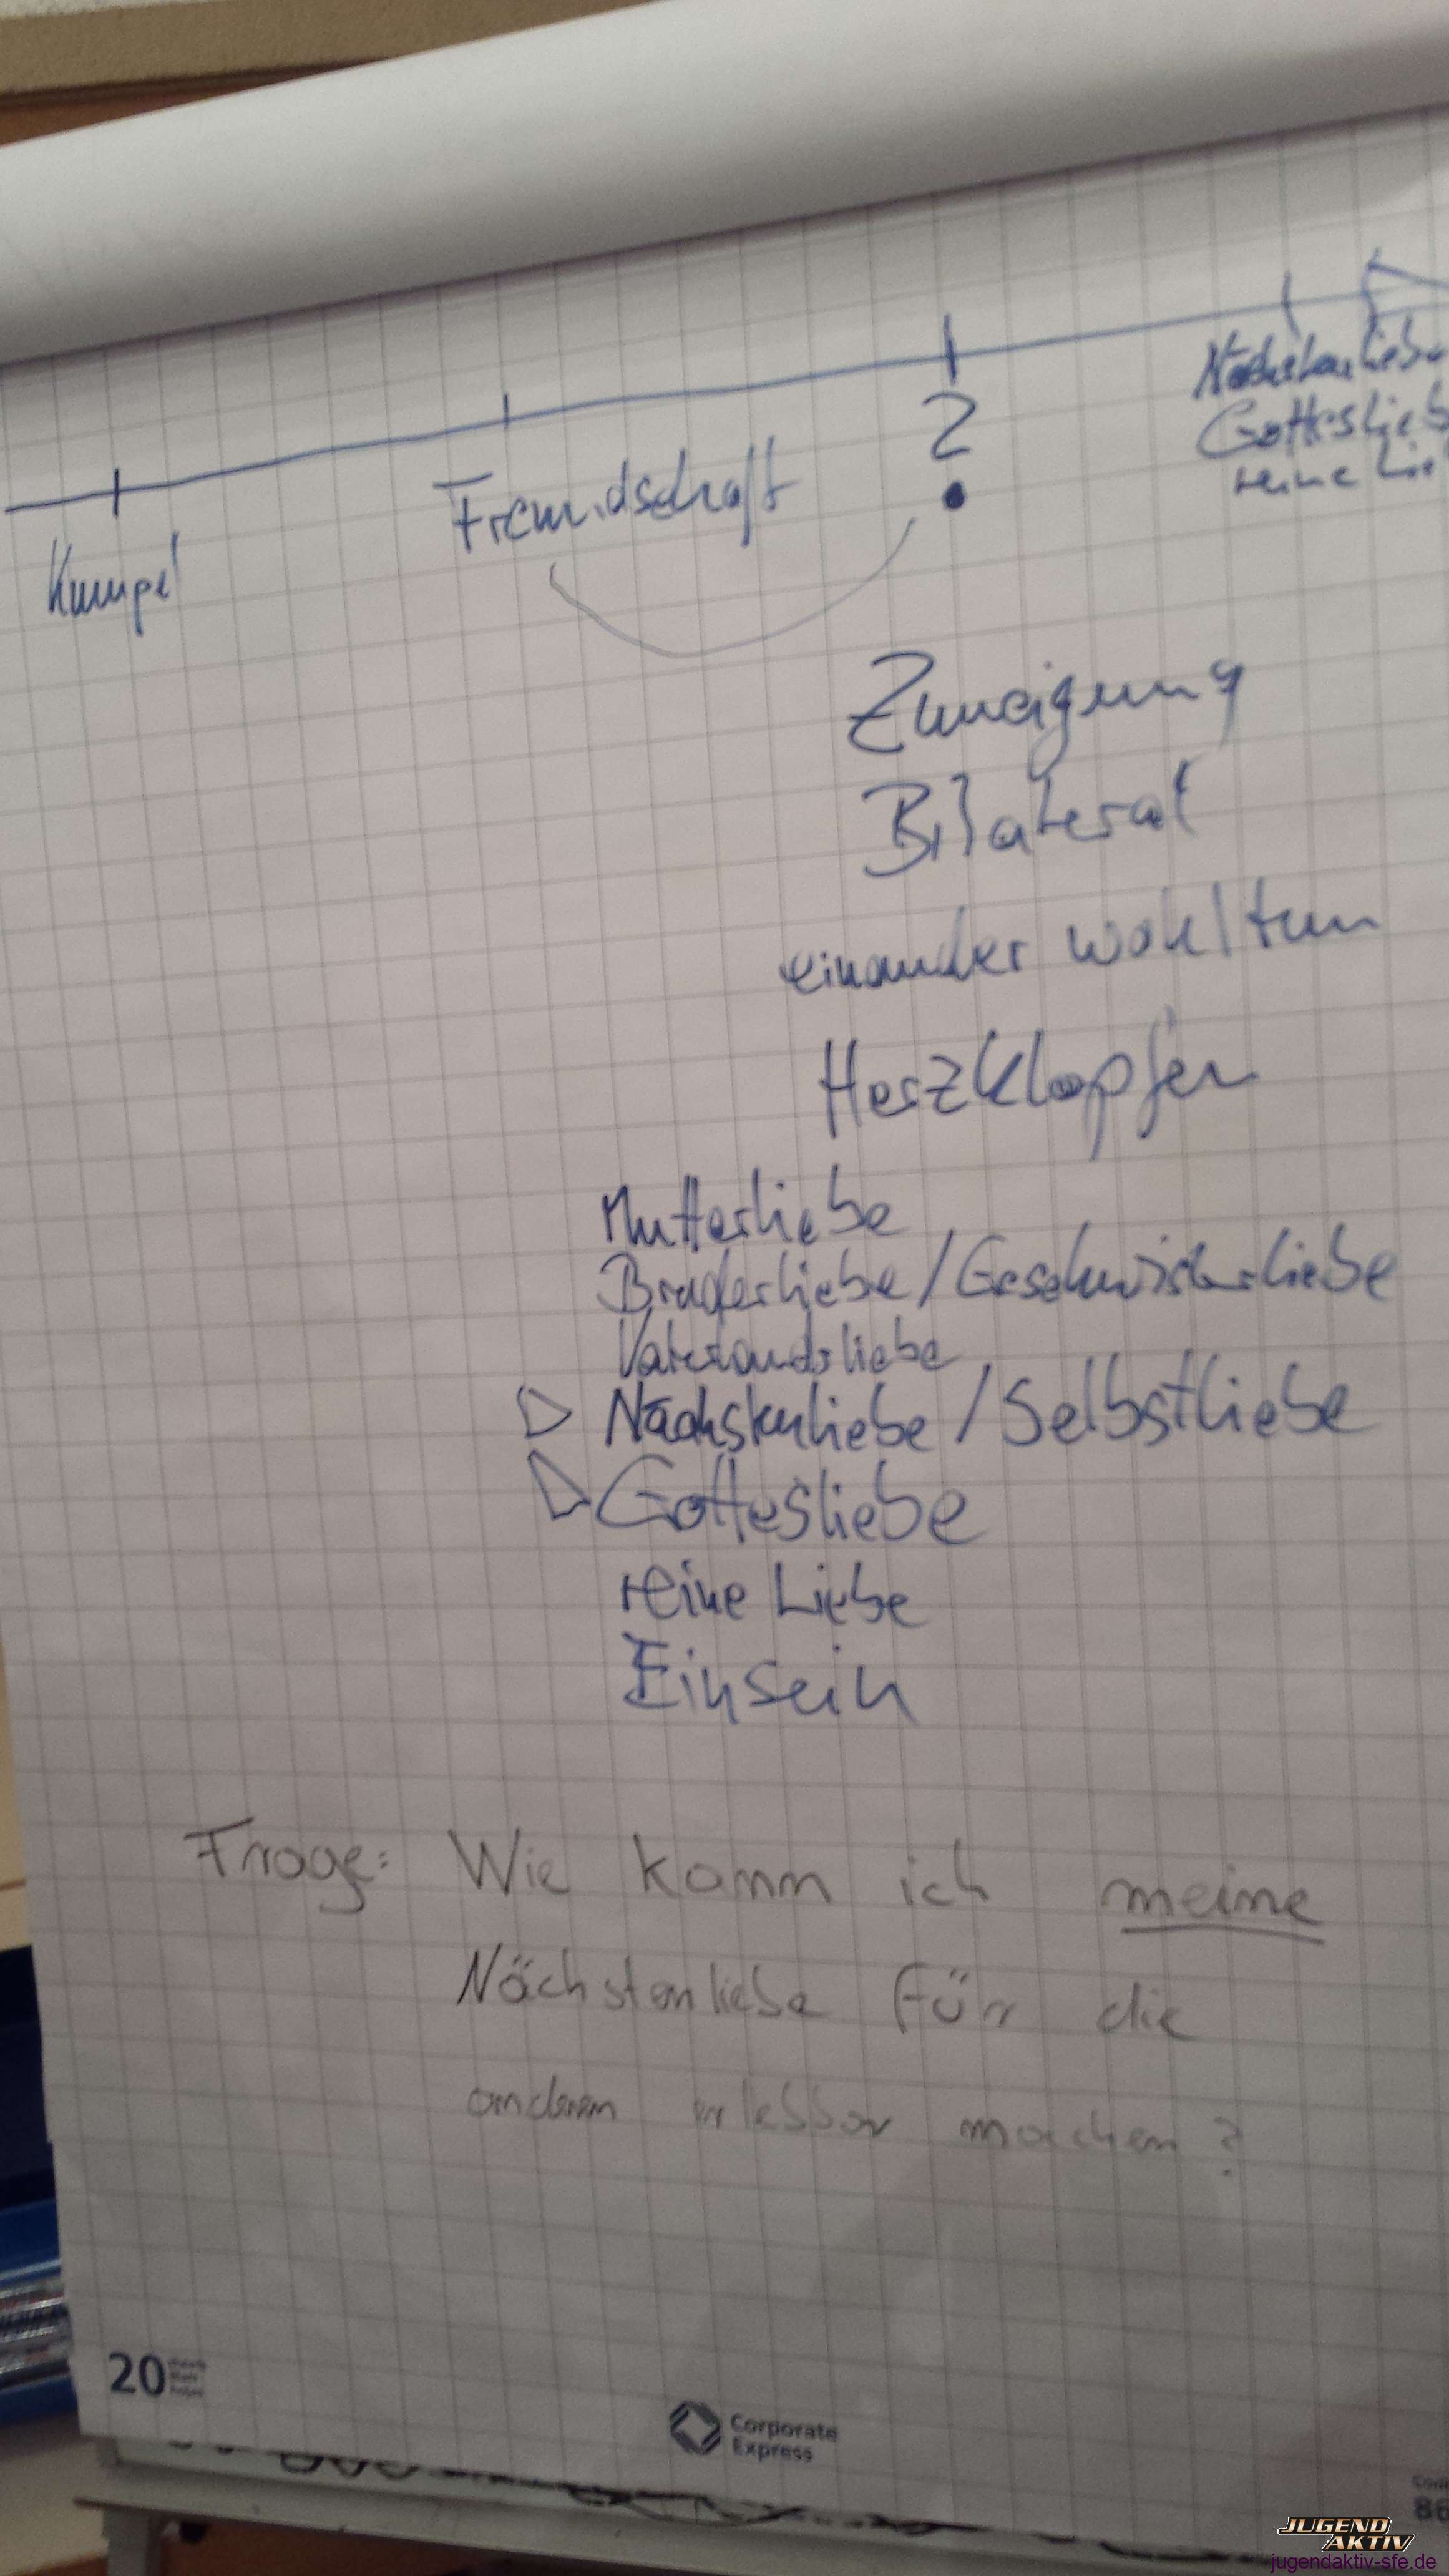 Kumpel
Freundschaft
?
Nächstenliebe
Gottesliebe
reine Lie
Zuneigung
Bilateral
einander wohltun
Herzklopfen
Mutterliebe
Bruderliebe/Geschwisterliebe
Vaterlandsliebe
Nächstenliebe/Selbstliebe
Gottesliebe
reine Liebe
Einsein
Frage: Wie kann ich meine
Nächstenliebe für die
anderen erlebbar machen?
20
Corporate
Express
86
JUGEND
AKTIV
jugendaktiv-sfe.de